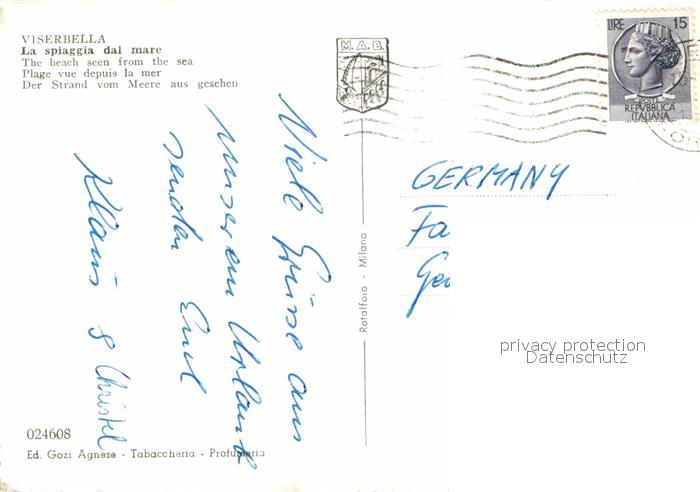 VISERBELLA
La spiaggia dal mare
The beach seen from the sea
Plage vue depuis la mer
Der Strand vom Meere aus gesehen
M.A.B.
LIRE 15
POSTE
REPVBBLICA
ITALIANA
Viele Grüsse aus
unserem Urlaub
senden Euch
Klaus & Christel
GERMANY
Fa
Ge
Rotalfoto - Milano
privacy protection
Datenschutz
024608
Ed. Gozi Agnese - Tabaccheria - Profumeria